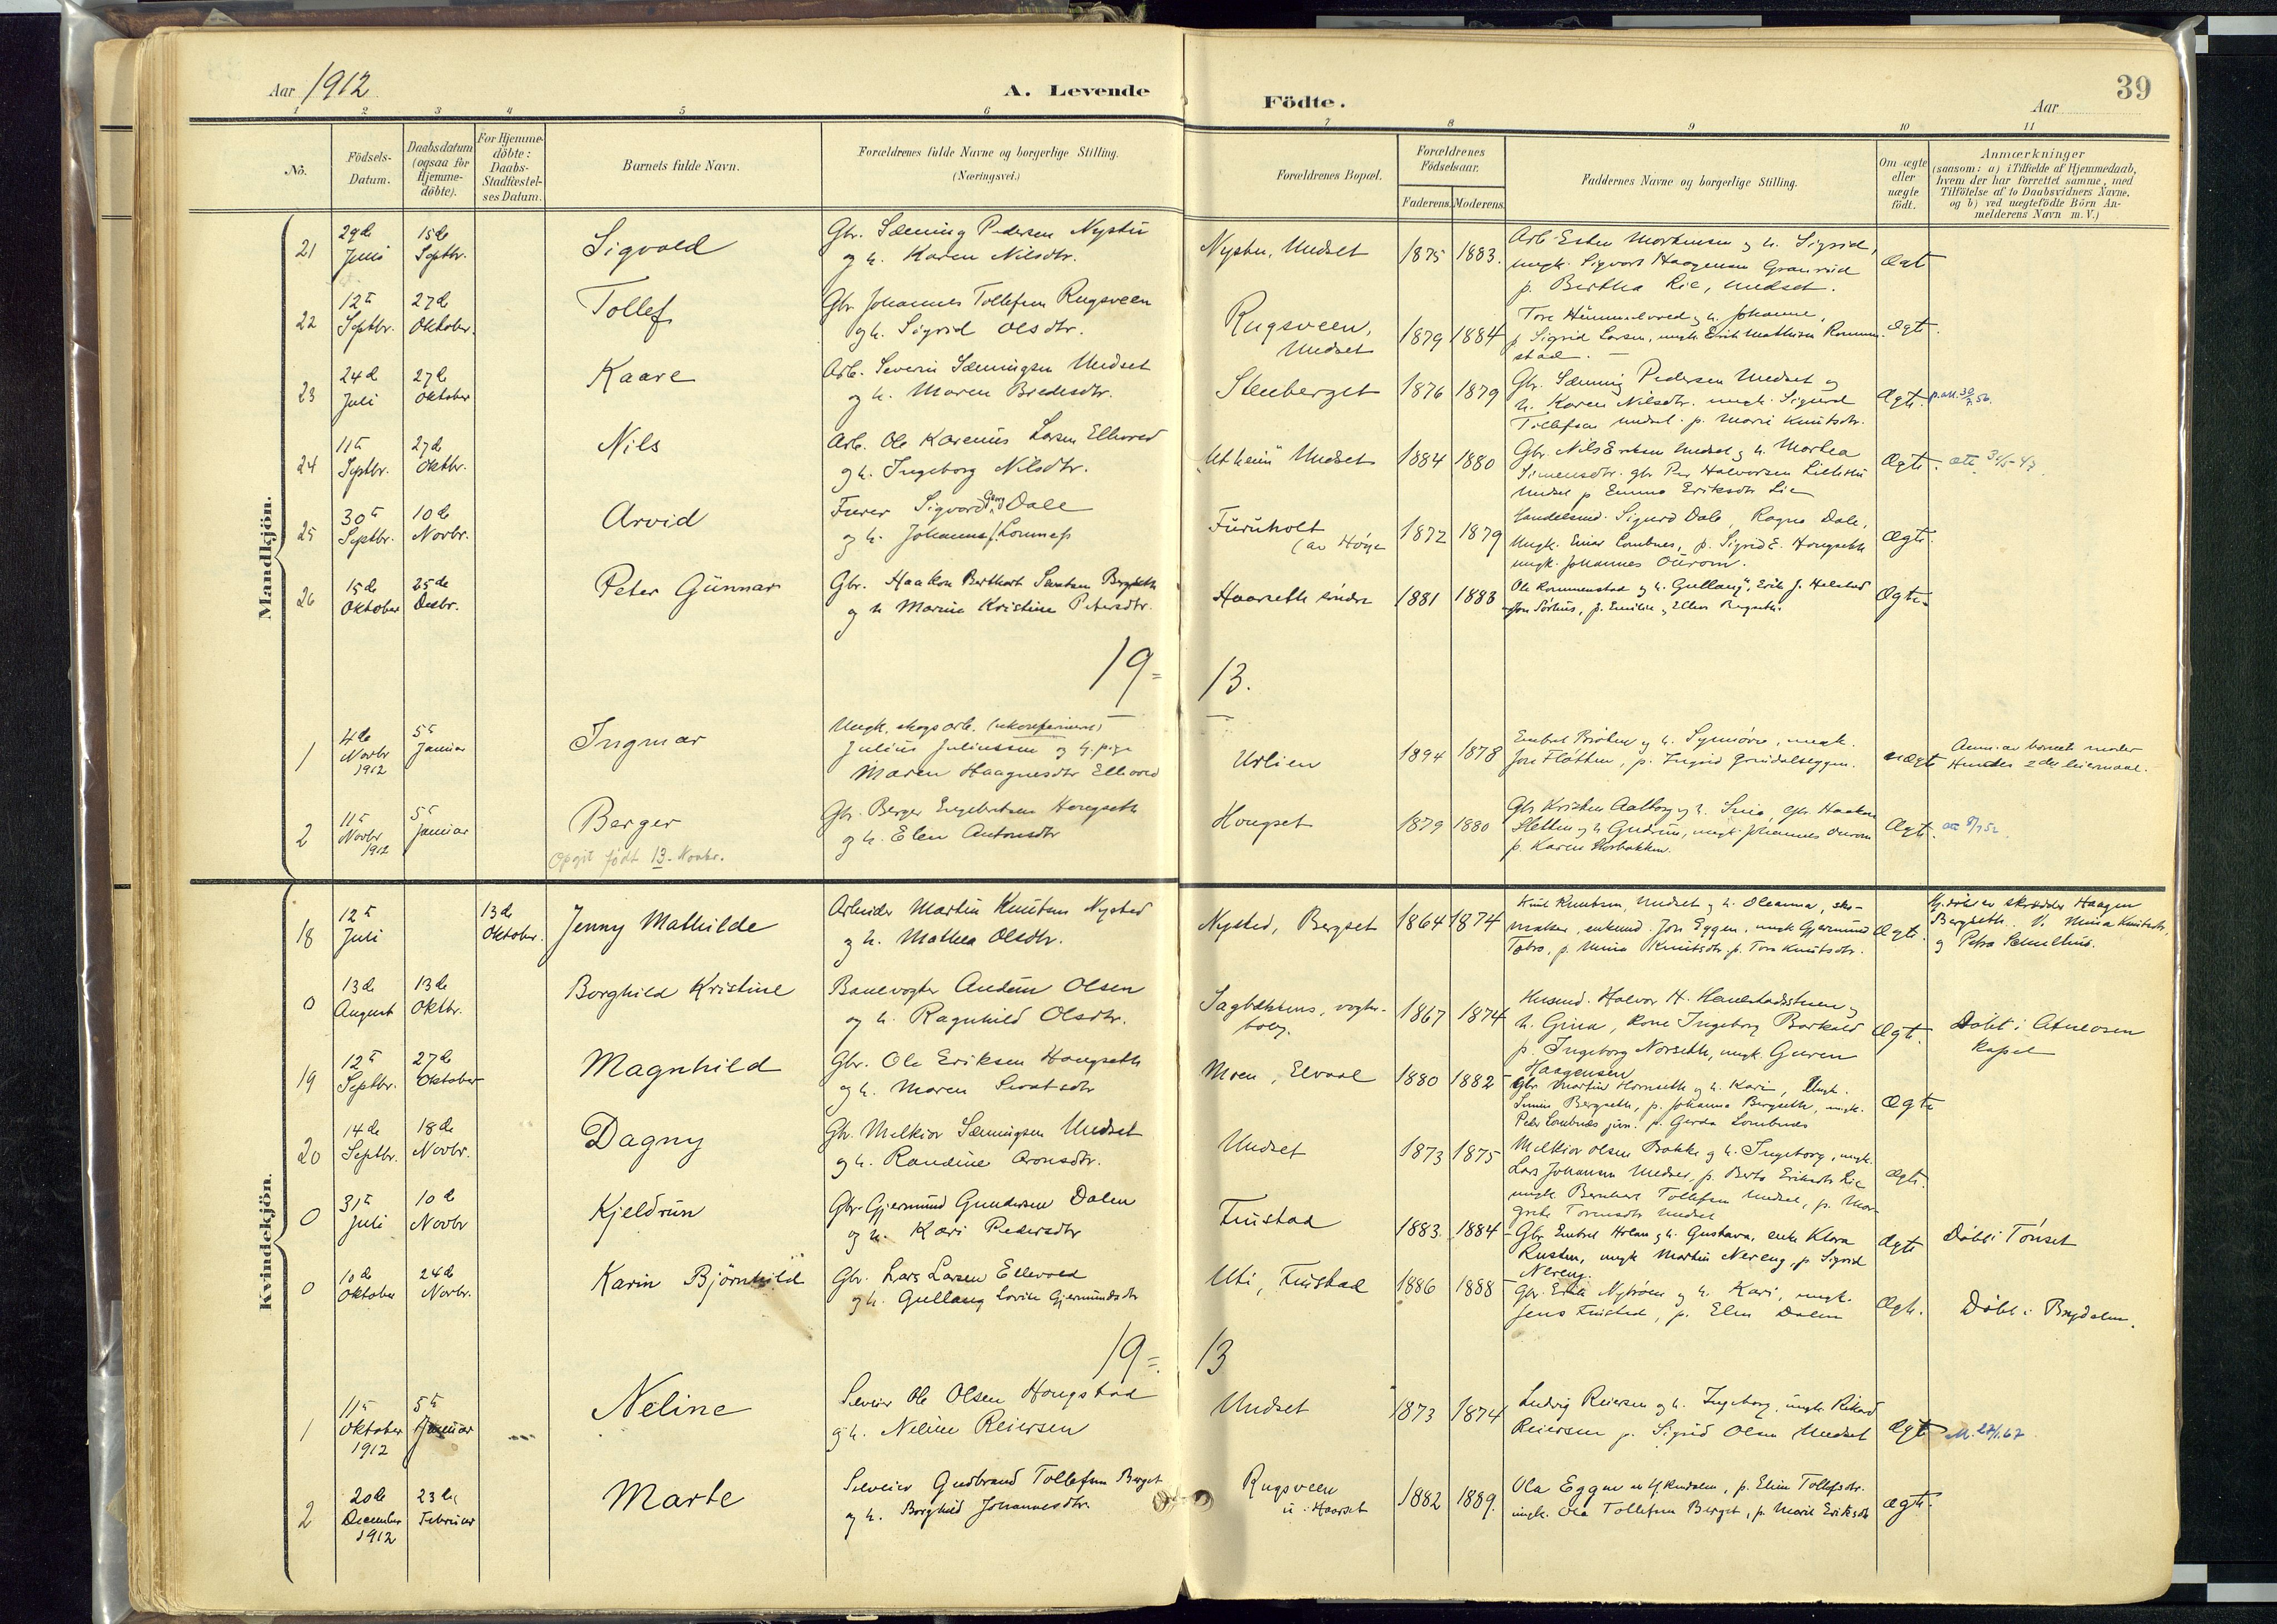 Aar 1912
A. Levende Födte.
39
Aar
1 2 3 4 5 6 7 8 9 10 11
No.
Födsels-Datum.
Daabsdatum (ogsaa for Hjemme-döbte).
For Hjemme-döbte: Daabs-Stadfæstel-ses Datum.
Barnets fulde Navn.
Forældrenes fulde Navne og borgerlige Stilling. (Næringsvei.)
Forældrenes Bopæl.
Forældrenes Födselsaar.
Faderens. Moderens.
Faddernes Navne og borgerlige Stilling.
Om ægte eller uægte födt.
Anmærkninger
(saasom: a) i Tilfælde af Hjemmedaab,
hvem der har forrettet samme, med
Tilföielse af to Daabsvidners Navne,
og b) ved uægtefödte Börn An-
melderens Navn m. V.)
Mandkjön.
21 29de Juni 15de Septbr. Sigvald Gbr. Sæming Pedersen Nystu
og h. Karen Nilsdtr. Nystu, Undset 1875 1883. Arb. Esten Mortensen og h. Sigrid,
ungk. Sigvart Haagensen Granrud
p. Bertha Lie, Undset. Ægt
22 12te Septbr. 27de Oktober. Tollef Gbr. Johannes Tollefsen Rugsveen
og h. Sigrid Olsdtr. Rugsveen, Undset 1879 1884 Tore og h. Johanne,
p Sigrid Larsen, ungk. Erik Mathisen
stad. Ægte.
23 24de Juli 27de Oktober Kaare Arb. Severin Sæmingsen Undset
og h. Maren Bredesdtr. Stenberget 1876 1879 Gbr. Sæming Pedersen Undset og
h. Karen Nilsdtr. ungk. Sigurd
Tollefsen Undset. p. Mari Knutsdtr. Ægte.
24 11te Septbr. 27de Oktbr. Nils Arb. Ole Karenus Larsen Ellevold
og h. Ingeborg Nilsdtr. Utheim Undset 1884 1880 Gbr. Nils Eriksen Undset og h. Marthea
Simensdtr. gbr Per Halvorsen
Undset p Emma Eriksdtr Lie Ægte.
25 30te Septbr. 10de Novbr. Arvid Furer Sigvard Georg Dale
og h. Johanne f. Lomnes Furuholt 1872 1879 Handelsmd. Sigurd Dale, Ragna Dale,
Ungk. Einar Lombnes, p. Sigrid E. Hongseth
ungk. Johannes Ægte.
26 15de Oktober 25de Decbr. Peter Gunnar Gbr. Haakon Berthart Bergseth
og h Marie Kristine Petersdtr. Haarseth söndre 1881 1883 Ole Rommenstad og h. Gullaug, Erik J.
p. Emilie og Ellen Bergseth. Ægte.
19=13.
1 4de Novbr 1912 5te Januar Ingmar Ungk. skogsarb. (ukonfirmeret)
Julius Juliussen og h. pige
Maren Haagensdtr Ellevold Urlien 1894 1878 Embret og h. Synnöve, ungk.
Jon Flötten, p. Ingrid uægte Anm. av barnets moder
Hendes 2det leiermaal.
2 11te Novbr 1912 5te Januar Berger Gbr. Berger Engebretsen Hongseth
og h. Elen Antonsdtr
Opgit födt 13. Novbr. Hongset 1879 1880 Gbr Kristen Aalborg og h. gbr. Haakon
Sletten og h Gudrun, ungk. Johannes
p. Karen Ægte.
Kvindekjön.
18 12te Juli 13de Oktober. Jenny Mathilde Arbeider Martin Knutsen Nysted
og h. Mathea Olsdtr. Nysted, Bergset 1864 1874 Knut Knutsen, Undset og h. Oleanna, sko-
maker, enkemd. Jon Eggen, ungk Gjermund
p. Mina Knutsdtr p. Tora Knutsdtr. Ægte. Hj. döbt av skrædder Haagen
Bergseth. V. Mina Knutsdtr,
og Petra
0 13de August 13de Oktbr. Borghild Kristine Banevogter Olsen
og h. Ragnhild Olsdtr. Sagbakkens, vogter-
bolig. 1867 1874 Husmd. Halvor H. og
h. Gina, Kone Ingeborg Barkald
p. Ingeborg Norseth, ungk. Guren
Haagensen Ægt. Döbt i Atneosen
kapel
19 12te Septbr. 27de Oktober Magnhild Gbr. Ole Eriksen Hongseth
og h. Maren Moen, Elvaal 1880 1882 Gbr Martin Hornseth og h. Kari, Ungk.
Bergseth, p. Johanna Bergseth, ungk.
Peder Lombnes jun. p. Gerda Lombnes Ægte
20 14de Septbr. 18de Novbr. Dagny Gbr. Melkior Sæmingsen Undset
og h. Randine Aronsdtr. Undset 1873 1875 Melkior Olsen Bakke og h. Ingeborg, ungk.
Lars Johansen Undset, p. Berte Eriksdtr Lie
ungk Bernhart Tollefsen Undset, p. Mar-
grete Undset Ægte.
0 31te Juli 10de Novbr Kjeldrun Gbr. Gjermund Gundersen Dalen
og h. Kari Pedersdtr Finstad 1883. 1884 Gbr Embret og h. Gustava, enke Klara
Rusten, ungk Martin Nereng, p Sigrid
Nereng. Ægte Döbt i Tönset
0 10de Oktober 24de Novbr. Karin Björnhild Gbr. Lars Larsen Ellevold
og h. Gullaug Lovise Gjermundsdtr Uti, Finstad 1886 1888 Gbr. og h. Kari, ungk.
Jens Finstad, p. Elen Dalen Ægte. Döbt i Brydalen.
19=13
1 11te Oktober 1912 5te Januar Neline Selveier Ole Olsen Hongstad
og h. Neline Reiersen Undset 1873 1874 Ludvig Reiersen og h. Ingeborg, ungk. Rikard
Reiersen p. Sigrid Olsen Undset Ægte
2 20de December 1912 23de Februar Marte Selveier Gudbrand Tollefsen Berget
og h. Borghild Johannesdtr. Rugsveen
u. Haarset 1882 1889 Ola Eggen p. Elin Tollefsdtr.
ungk. Ola Tollefsen Berget, p. Marit Eriksdtr Ægte.